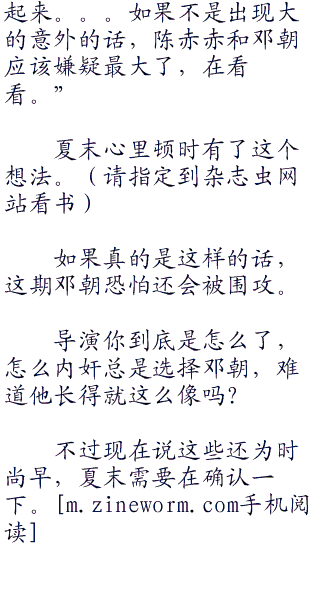 起来。。。如果不是出现大
的意外的话，陈赤赤和邓朝
应该嫌疑最大了，在看
看。”
夏末心里顿时有了这个
想法。（请指定到杂志虫网
站看书）
如果真的是这样的话，
这期邓朝恐怕还会被围攻。
导演你到底是怎么了，
怎么内奸总是选择邓朝，难
道他长得就这么像吗？
不过现在说这些还为时
尚早，夏末需要在确认一
下。[m.zineworm.com手机阅
读]